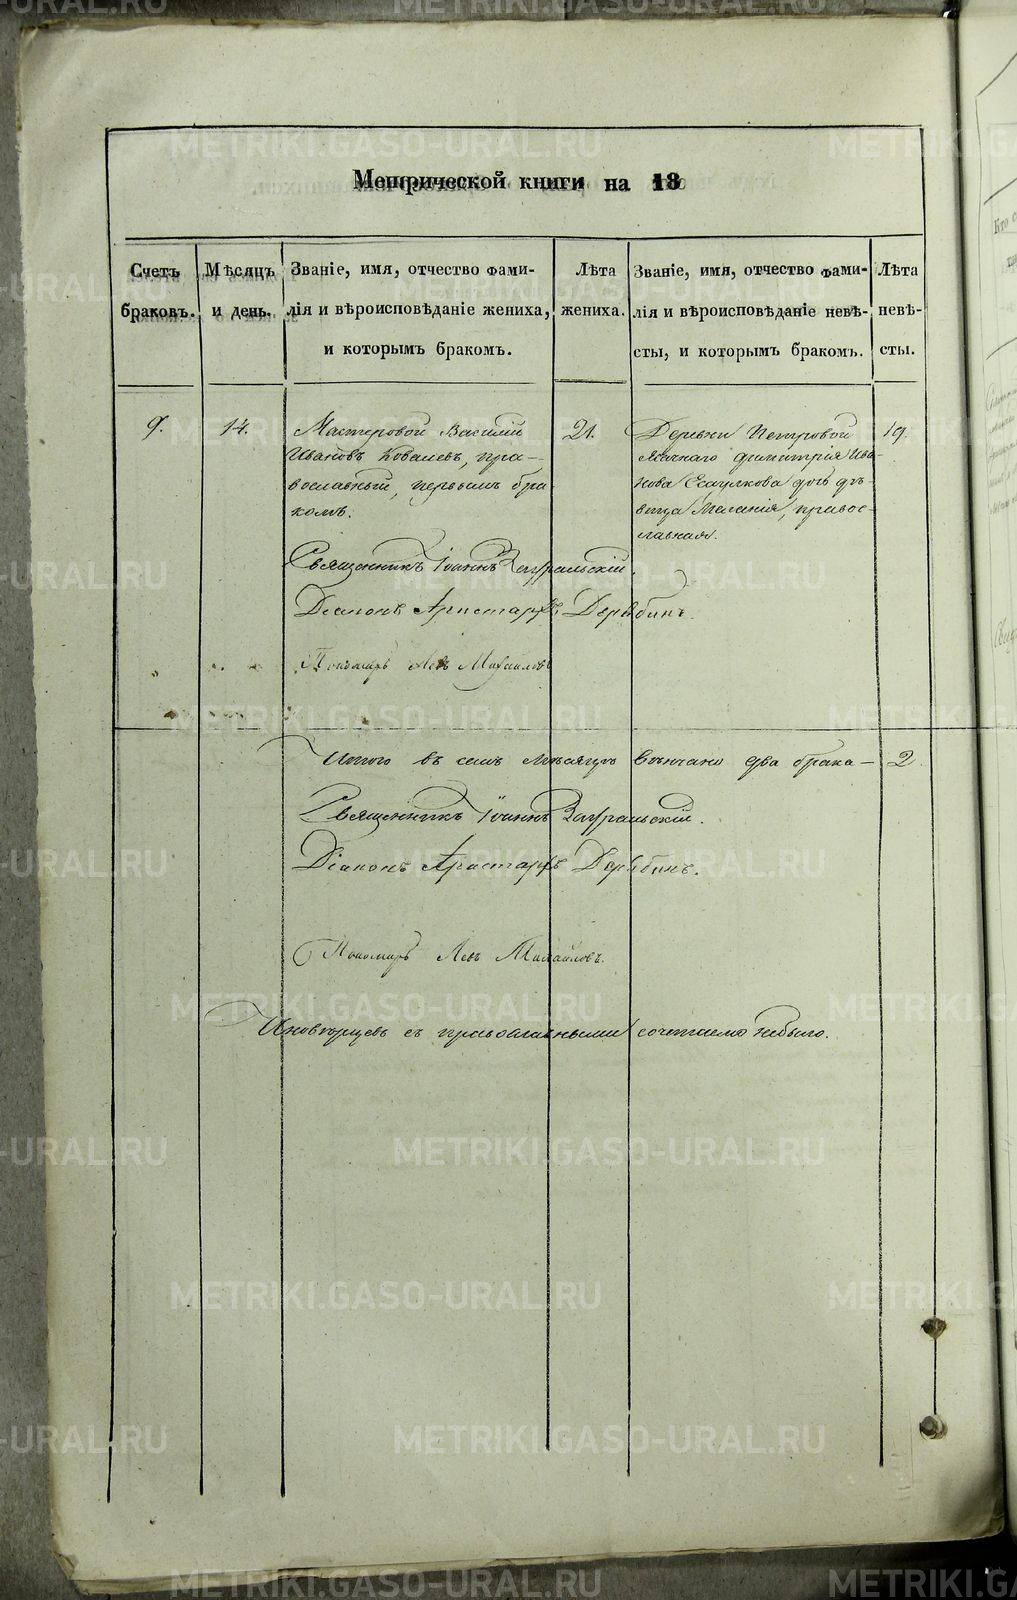 Метрической книги на 18
Счетъ браковъ.
Мѣсяцъ и день.
Званіе, имя, отчество фами-
лія и вѣроисповѣданіе жениха,
и которымъ бракомъ.
Лѣта жениха.
Званіе, имя, отчество фами-
лія и вѣроисповѣданіе невѣ-
сты, и которымъ бракомъ.
Лѣта невѣ-
сты.
9.
14.
Мастеровой Василій
Ивановъ Ковалевъ, пра-
вославный, первымъ бра
комъ.
21.
Деревни Петровой
Ясачнаго Димитрія Ива-
нова Есаулкова дочь дѣ-
вица Меланія, правос-
лавная.
19.
Священникъ Іоаннъ Зауральскій.
Діаконъ Аристархъ Дерябинъ.
Пономарь Левъ Михайловъ
Итого въ семъ мѣсяцѣ вѣнчано два брака— 2.
Священникъ Іоаннъ Зауральскій.
Діаконъ Аристархъ Дерябинъ.
Пономарь Левъ Михайловъ.
Иновѣрцевъ съ православными сочетаемо небыло.
METRIKI.GASO-URAL.RU